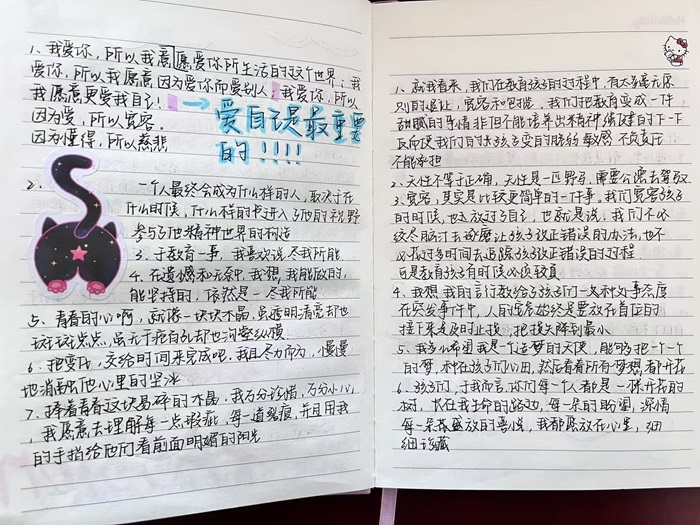 1、我爱你，所以我愿愿爱你所生活的这个世界；我
爱你，所以我愿意因为爱你而爱别人；我爱你，所以
我愿意更爱我自己！
因为爱，所以宽容。
因为懂得，所以慈悲
→爱自己是最重要
的！！！！
2、一个人最终会成为什么样的人，取决于在
什么时候，什么样的书进入了他的视野
参与了他精神世界的构造
3、于教育一事，我喜欢说尽我所能
4、在遗憾和无奈中，我想，我能放的，
能坚持的，依然是一尽我所能
5、青春的心啊，就像一块块水晶，虽透明清亮却也
斑斑点点，虽无千疮百孔却也沟壑纵横
6、把变化，交给时间来完成吧，我且尽力而为，慢慢
地消融他心里的坚冰
7、捧着青春这块易碎的水晶，我百分珍惜，百分小心
，我愿意去理解每一点瑕疵，每一道裂痕，并且用我
的手指给他们看前面明媚的阳光
1、就我看来，我们在教育孩子的过程中，有太多毫无原
则的退让，宽容和包容，我们把教育变成一件
甜腻的事情，非但不能培养出精神强健的下一
反而使我们的孩子变的脆弱敏感不负责任
不能承担
2、天性不等于正确，天性是一匹野马，需要公德去驾驭
3、宽容，其实是比较更简单的一件事，我们宽容孩子
的时候，也是放过了自己，也就是说，我们不必
绞尽脑汁去琢磨让孩子改正错误的办法，也不
必花过多时间去追踪孩子改正错误的过程
可是教育孩子有时候必须较真
4、我想我的言行教给了孩子们一各种处事态度
在突发事件中，人的安危始终是要放在首位的
接下来是及时止损，把损失降到最小
5、我多么希望我是一个造梦的天使，能够把一个一个
的梦，种在孩子们心田，然后看着所有梦想都开花
6、孩子们，于我而言，你们每一个人都是一棵开花的
树，长在我生命的路边，每一朵的盼望，深情
每一朵盛放的喜悦，我都愿放在心里，细
细珍藏